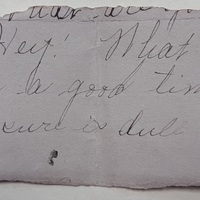 Hey! What
a good tim
sure is dul